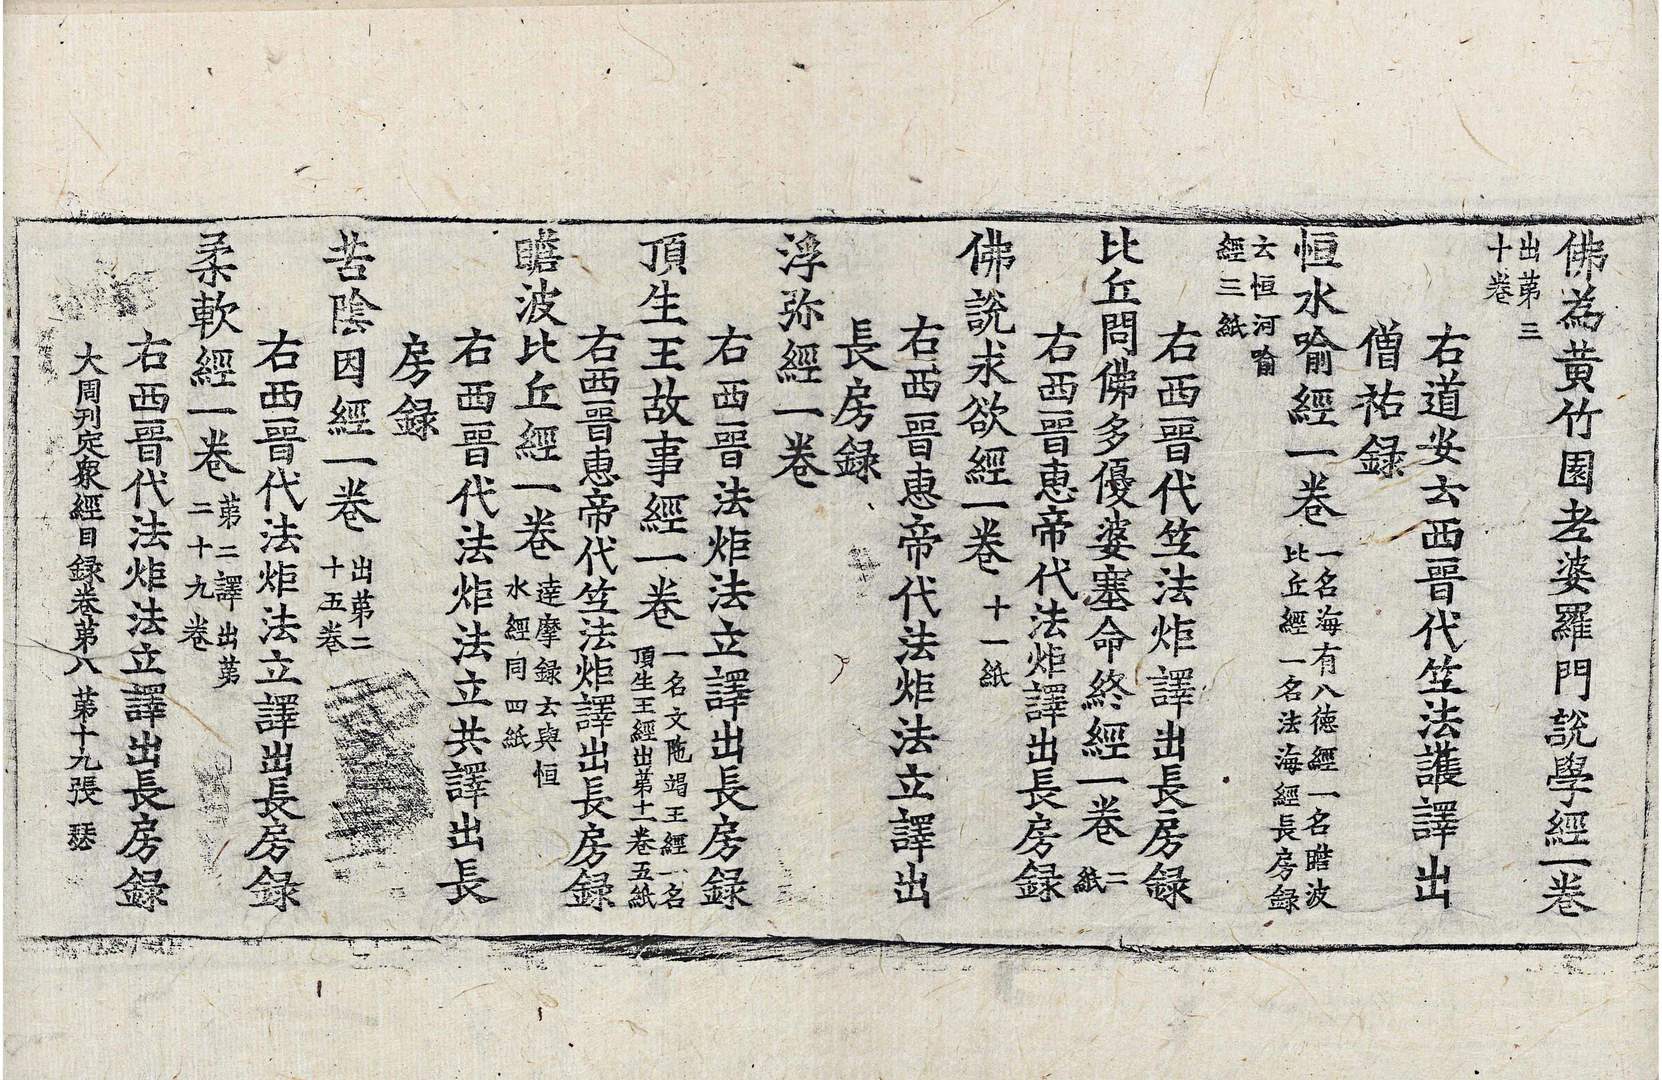 佛為黃竹園老婆羅門說學經一卷
出苐三
十卷
右道安云西晉代竺法護譯出
僧祐録
恒水喻經一卷
一名海有八德經一名瞻波
比丘經一名法海經長房録
云恒河喻
經三紙
右西晉代竺法炬譯出長房録
比丘問佛多優婆塞命終經一卷
二
紙
右西晉惠帝代法炬譯出長房録
佛說求欲經一卷 十一紙
右西晉惠帝代法炬法立譯出
長房録
浮弥經一卷
右西晉法炬法立譯出長房録
頂生王故事經一卷
一名文陁竭王經一名
頂生王經出苐十一卷五紙
右西晉惠帝代竺法炬譯出長房録
瞻波比丘經一卷
達摩録云與恒
水經同四紙
右西晉代法炬法立共譯出長
房録
苦陰因經一卷
出苐二
十五卷
右西晉代法炬法立譯出長房録
柔軟經一卷
苐二譯出苐
二十九卷
右西晉代法炬法立譯出長房録
大周刊定衆經目録卷苐八 苐十九張 瑟